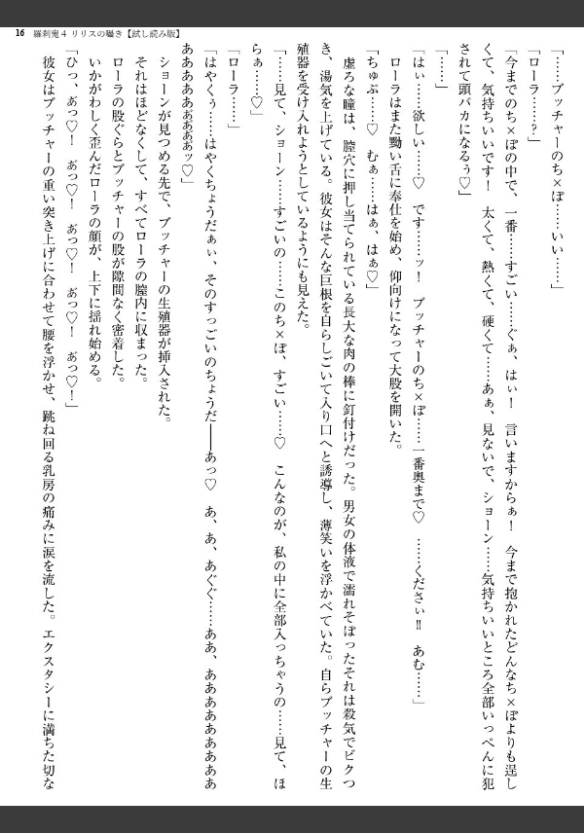 16 羅刹鬼4 リリスの囁き【試し読み版】
「……ブッチャーのち×ぽ……いい……」
「ローラ……？」
「今までのち×ぽの中で、一番……すごい……ぐぁ、はぃ！　言いますからぁ！　今まで抱かれたどんなち×ぽよりも逞し
くて、気持ちいいです！　太くて、熱くて、硬くて……あぁ、見ないで、ショーン……気持ちいいところ全部いっぺんに犯
されて頭バカになるぅ♡」
「……」
「はぃ……欲しい……♡　です……ッ！　ブッチャーのち×ぽ……一番奥まで♡　……くださぃ‼　あむ……」
ローラはまた黝い舌に奉仕を始め、仰向けになって大股を開いた。
「ちゅぶ……♡　むぁ……はぁ、はぁ♡」
虚ろな瞳は、膣穴に押し当てられている長大な肉の棒に釘付けだった。男女の体液で濡れそぼったそれは殺気でビクつ
き、湯気を上げている。彼女はそんな巨根を自らしごいて入り口へと誘導し、薄笑いを浮かべていた。自らブッチャーの生
殖器を受け入れようとしているようにも見えた。
「……見て、ショーン……すごいの……このち×ぽ、すごい……♡　こんなのが、私の中に全部入っちゃうの……見て、ほ
らぁ……♡」
「ローラ……」
「はやくぅ……はやくちょうだぁぃ、そのすっごいのちょうだ――あっ♡　あ、あ、あぐぐ……ああ、あああああああああ
あああああああぁあぁあぁッ♡」
ショーンが見つめる先で、ブッチャーの生殖器が挿入された。
それはほどなくして、すべてローラの膣内に収まった。
ローラの股ぐらとブッチャーの股が隙間なく密着した。
いかがわしく歪んだローラの顔が、上下に揺れ始める。
「ひっ、あ゙っ♡！　あ゙っ♡！　あ゙っ♡！　あ゙っ♡！　あ゙っ♡！」
彼女はブッチャーの重い突き上げに合わせて腰を浮かせ、跳ね回る乳房の痛みに涙を流した。エクスタシーに満ちた切な